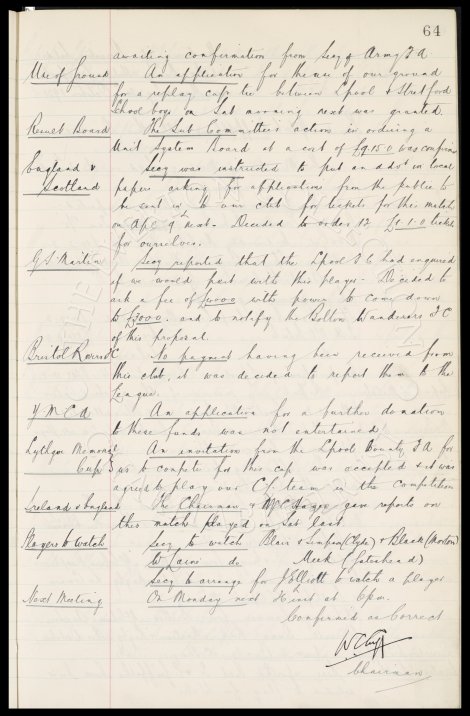 64
awaiting confirmation from Secy of Army F A
Use of ground An application for the use of our ground
for a replay cup tie between Lpool & Stretford
School boys on Sat morning next was granted.
Result Board The Sub Committee's action in ordering a
Unit System Board at a cost of £9.15.0 was confirmed
England v Secy was instructed to put an advt in local
Scotland papers asking for applications from the public to
be sent in to our club for tickets for this match
on Apl 9th next. Decided to order 12 £1.1.0 tickets
for ourselves.
G S Martin Secy reported that the Lpool F C had enquired
if we would part with this player. Decided to
ask a fee of £4000 with power to come down
to £3000. and to notify the Bolton Wanderers F C
of this proposal.
Bristol Rovers FC No payment having been received from
this club, it was decided to report them to the
League.
Y M C A An application for a further donation
to these funds was not entertained
Lythgoe Memorial An invitation from the Lpool County F A for
Cup us to compete for this cup was accepted & it was
agreed to play our team in the Competition
Ireland v England The Chairman & gave reports on
this match played on Sat last.
Players to watch Secy to watch Blair & (Clyde) & Black (Morton)
to do Meek (Gateshead)
Secy to arrange for J Elliott to watch a player
Next Meeting On Monday next at 6 p.m.
Confirmed as Correct
Chairman